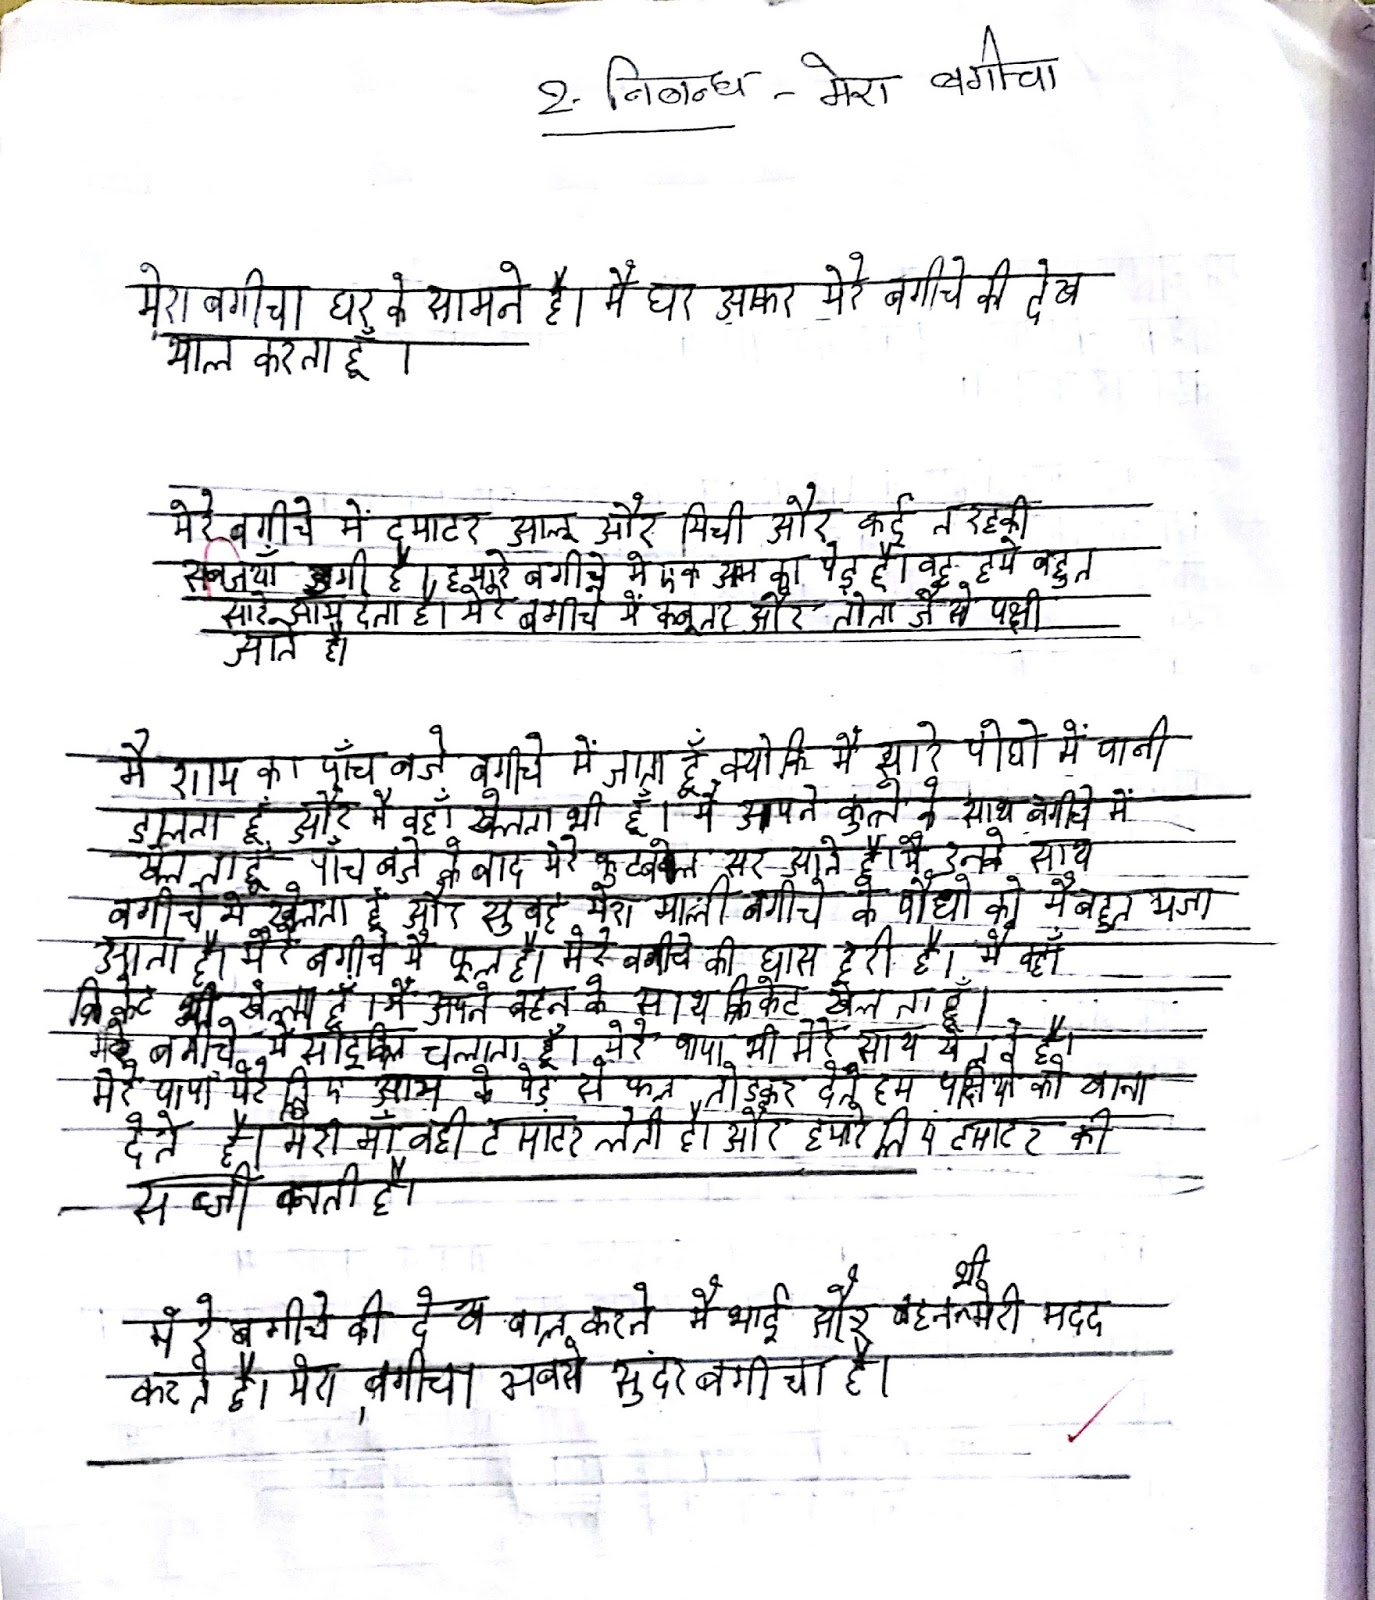 २. निबन्ध - मेरा बगीचा
मेरा बगीचा घर के सामने है। मैं घर आकर मेरे बगीचे की देख
भाल करता हूँ ।
मेरे बगीचे में टमाटर आलू और मिर्ची और कई तरहकी
सबजियाँ उगी है। हमारे बगीचे मे एक आम का पेड़ है। वह हमे बहुत
सारे आम देता है। मेरे बगीचे में कबूतर और तोता जैसे पक्षी
आते है।
मै शाम का पाँच बजे बगीचे में जाता हूँ क्योकि मैं सारे पौधो में पानी
डालता हूँ और मै वहाँ खेलता भी हूँ। मैं अपने कुत्ते के साथ बगीचे में
खेलता हूँ पाँच बजे के बाद मेरे फुटबोल सर आते है। मै उनके साथ
बगीचे मे खेलता हूँ और सुबह मेरा माली बगीचे के पौधो को मै बहुत मजा
आता है। मेरे बगीचे मै फूल है। मेरे बगीचे की घास हरी है। मै वहाँ
क्रिकेट भी खेलता हूँ। मैं अपने बहन के साथ क्रिकेट खेलता हूँ।
बगीचे में साइकिल चलाता हूँ। मेरे पापा भी मेरे साथ खेलते है।
मेरे पापा मेरे लिए आम के पेड़ से फल तोडकर देते हम पक्षियो को खाना
देते है। मेरी माँ वही टमाटर लेती है। और हमारे लिए टमाटर की
सब्जी बनाती है।
मेरे बगीचे की देख बाल करने मै भाई और बहन भी मेरी मदद
करते है। मेरा बगीचा सबसे सुंदर बगीचा है।